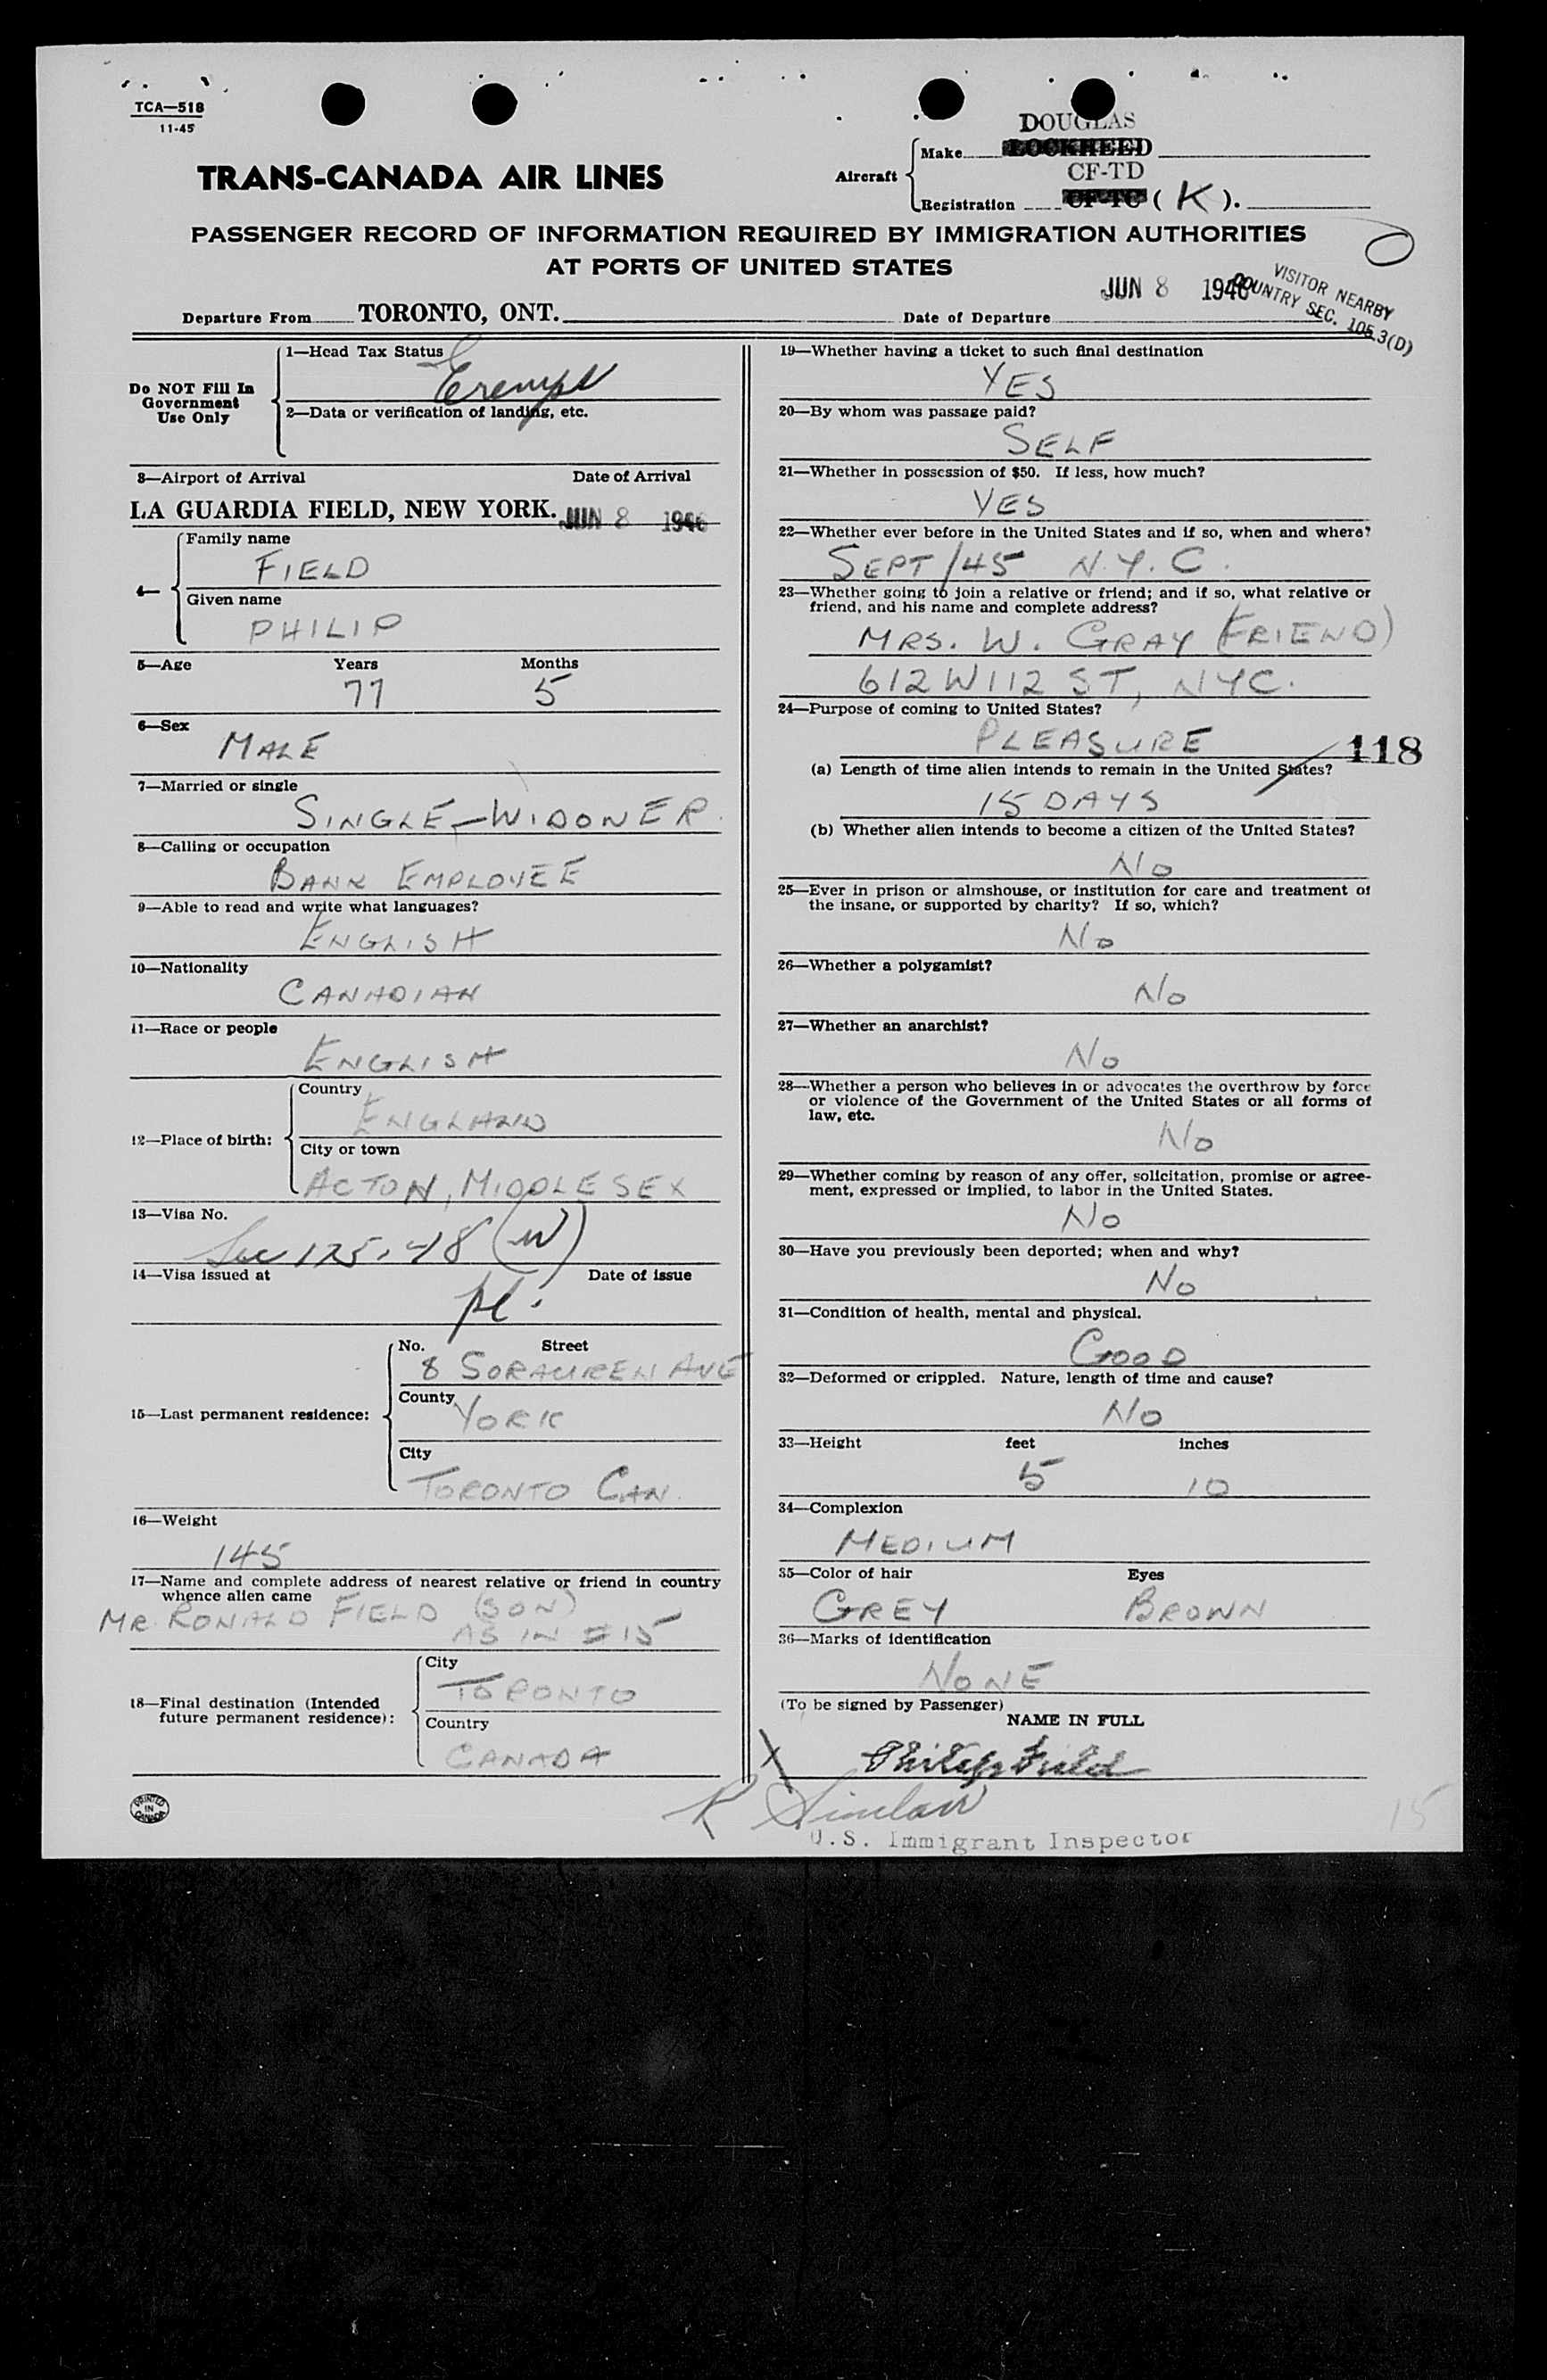 TCA—518
11-45
TRANS-CANADA AIR LINES
DOUGLAS
Aircraft
Make LOCKHEED
CF-TD
Registration CF-TC ( K ).
PASSENGER RECORD OF INFORMATION REQUIRED BY IMMIGRATION AUTHORITIES
AT PORTS OF UNITED STATES
JUN 8 1946
VISITOR NEARBY
COUNTRY SEC. 105.3(D)
Departure From TORONTO, ONT.
Date of Departure
Do NOT Fill In
Government
Use Only
1—Head Tax Status
Exempt
2—Data or verification of landing, etc.
3—Airport of Arrival Date of Arrival
LA GUARDIA FIELD, NEW YORK. JUN 8 1946
4—
Family name
FIELD
Given name
PHILIP
5—Age Years Months
77 5
6—Sex
MALE
7—Married or single
SINGLE—WIDONER.
8—Calling or occupation
BANK EMPLOYEE
9—Able to read and write what languages?
ENGLISH
10—Nationality
CANADIAN
11—Race or people
ENGLISH
12—Place of birth:
Country
ENGLAND
City or town
ACTON, MIDDLESEX
13—Visa No.
Sec 175.48 (W)
14—Visa issued at Date of issue
pl.
15—Last permanent residence:
No. Street
8 SORAUREN AVE
County
YORK
City
TORONTO CAN.
16—Weight
145
17—Name and complete address of nearest relative or friend in country
whence alien came
MR. RONALD FIELD (SON)
AS IN #15
18—Final destination (Intended
future permanent residence):
City
TORONTO
Country
CANADA
PRINTED
IN
CANADA
19—Whether having a ticket to such final destination
YES
20—By whom was passage paid?
SELF
21—Whether in possession of $50. If less, how much?
YES
22—Whether ever before in the United States and if so, when and where?
SEPT/45 N.Y.C.
23—Whether going to join a relative or friend; and if so, what relative or
friend, and his name and complete address?
MRS. W. GRAY (FRIEND)
612 W 112 ST, NYC.
24—Purpose of coming to United States?
PLEASURE
118
(a) Length of time alien intends to remain in the United States?
15 DAYS
(b) Whether alien intends to become a citizen of the United States?
NO
25—Ever in prison or almshouse, or institution for care and treatment of
the insane, or supported by charity? If so, which?
NO
26—Whether a polygamist?
NO
27—Whether an anarchist?
NO
28—Whether a person who believes in or advocates the overthrow by force
or violence of the Government of the United States or all forms of
law, etc.
NO
29—Whether coming by reason of any offer, solicitation, promise or agree-
ment, expressed or implied, to labor in the United States.
NO
30—Have you previously been deported; when and why?
NO
31—Condition of health, mental and physical.
GOOD
32—Deformed or crippled. Nature, length of time and cause?
NO
33—Height feet inches
5 10
34—Complexion
MEDIUM
35—Color of hair Eyes
GREY BROWN
36—Marks of identification
NONE
(To be signed by Passenger)
NAME IN FULL
X Philip Field
R Sinclair
U.S. Immigrant Inspector
15